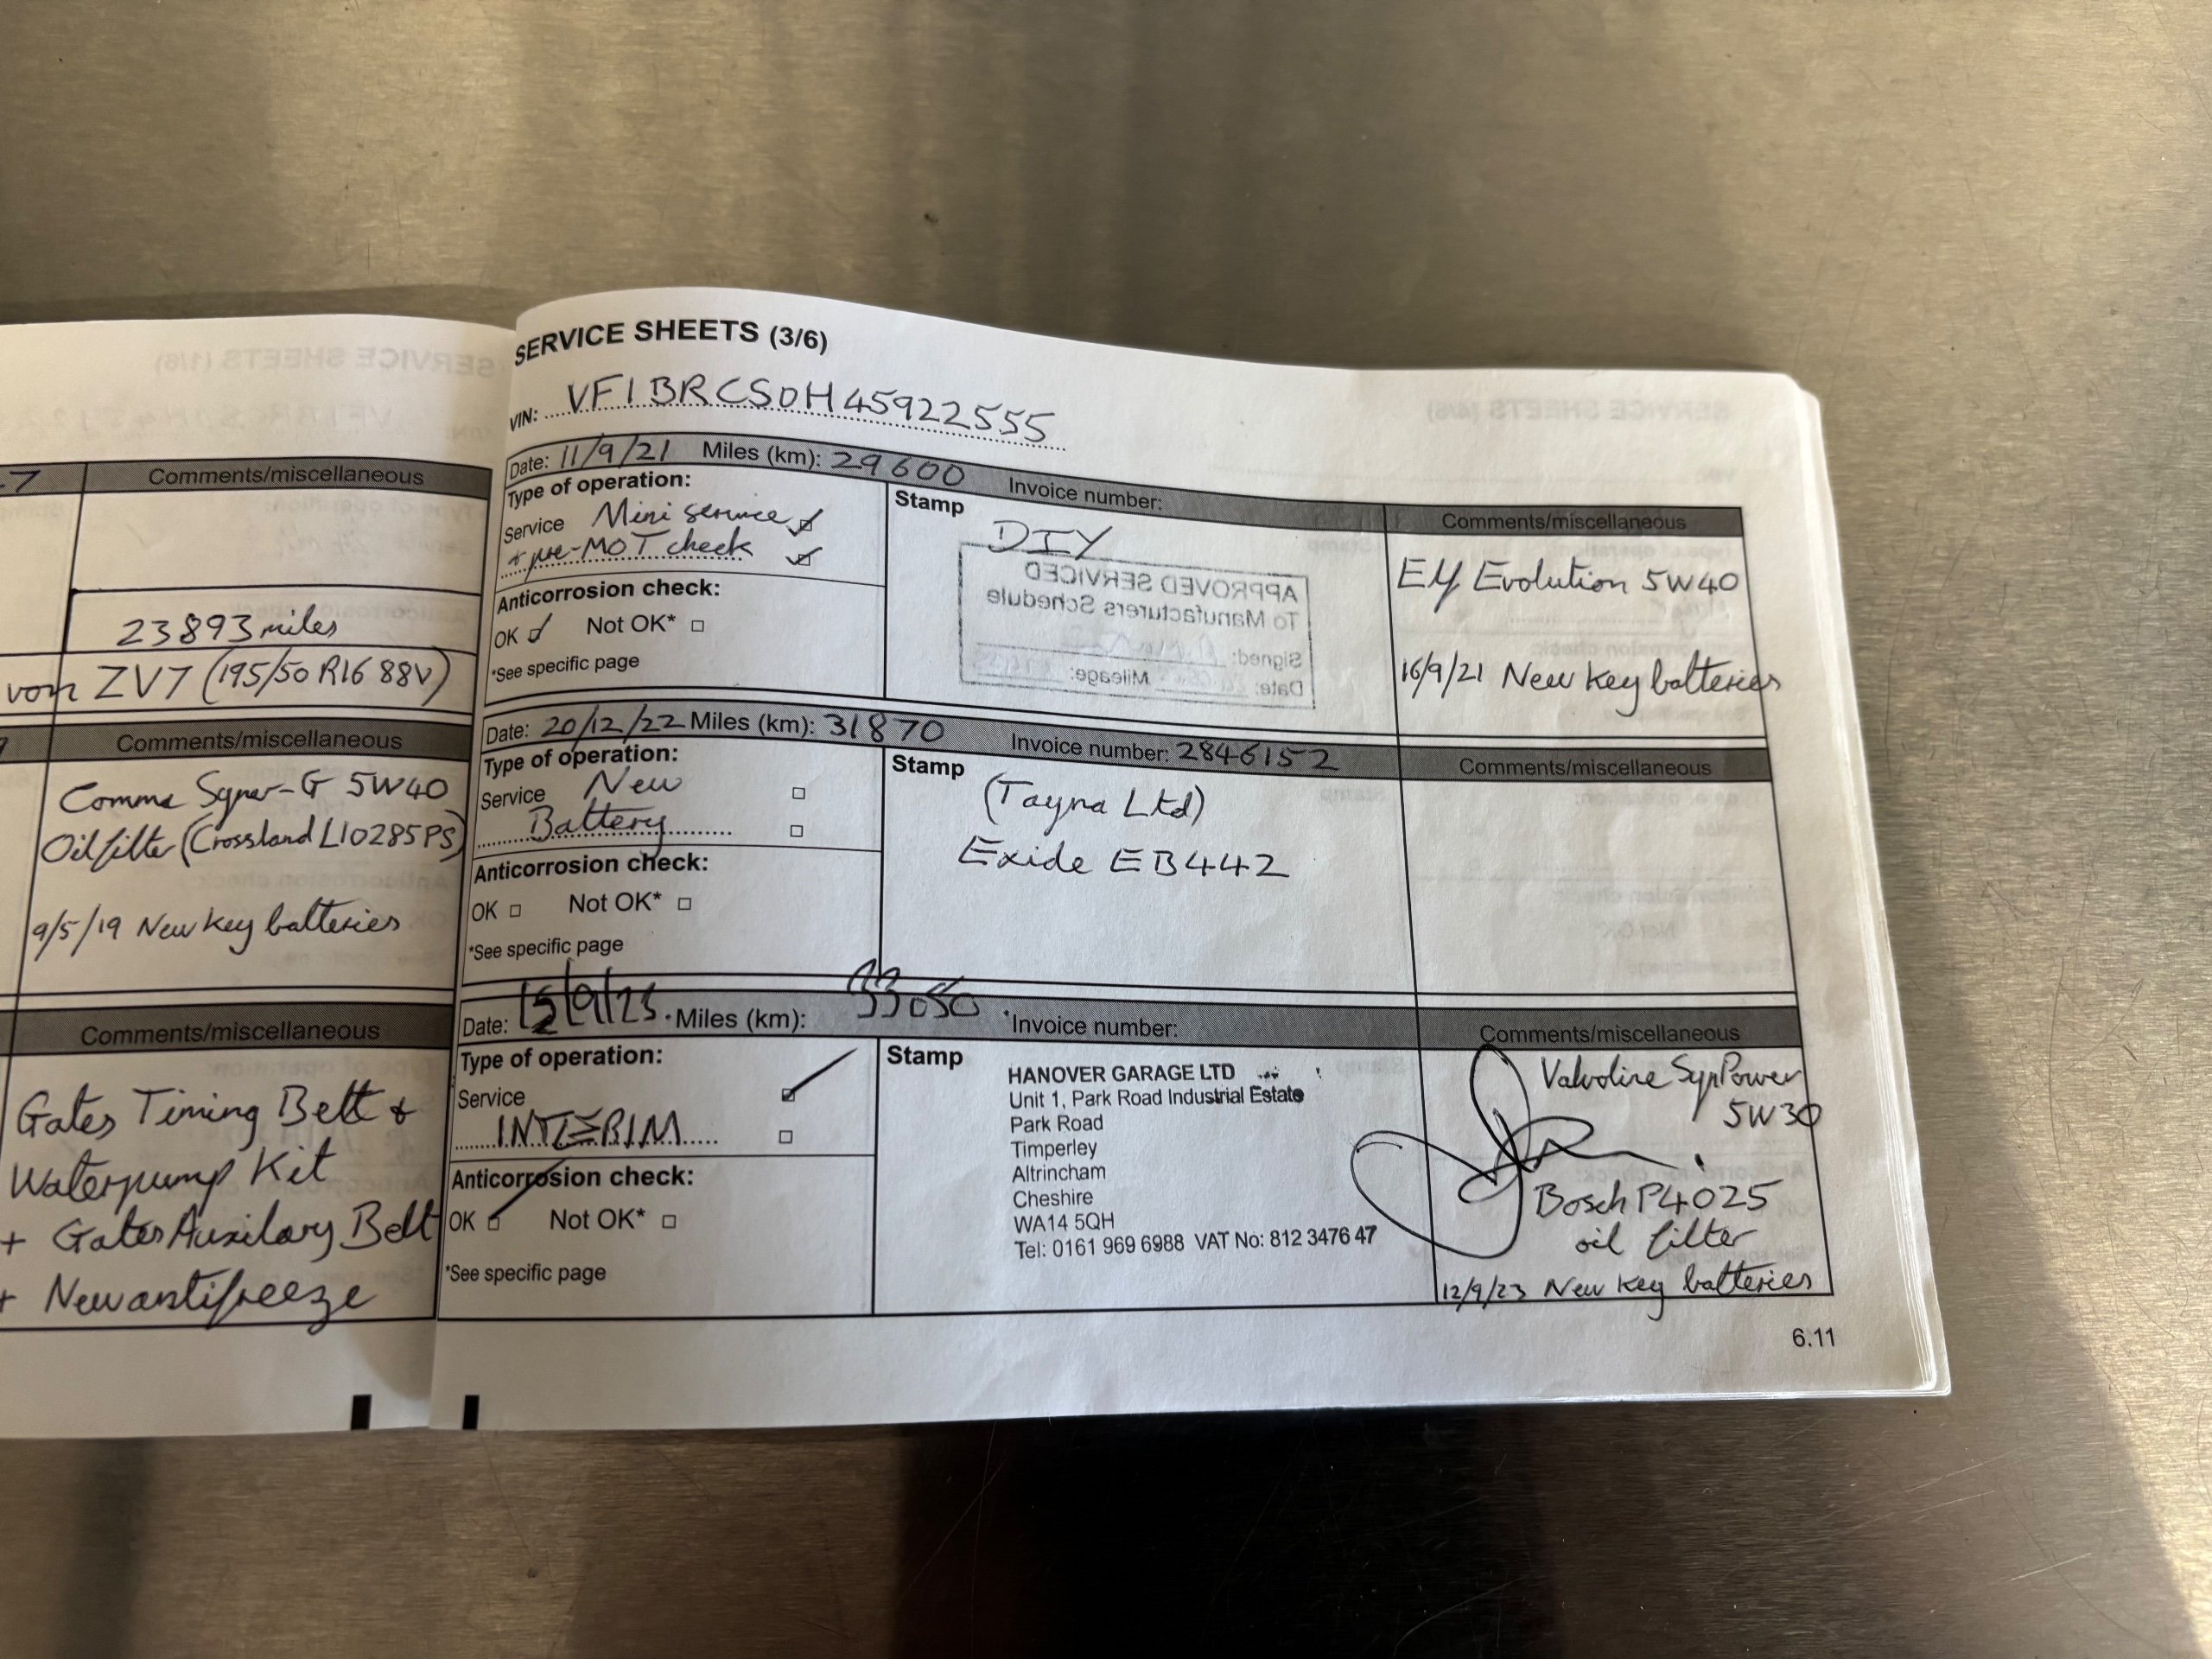 Comments/miscellaneous
23893 miles
ZV7 (195/50 R16 88V)
Comments/miscellaneous
Comma Syner-G 5W40
Oil filter (Crossland L10285PS)
9/5/19 New key batteries
Comments/miscellaneous
Gates Timing Belt +
Waterpump Kit
+ Gates Auxilary Belt
+ New antifreeze
SERVICE SHEETS (3/6)
VIN: VF1BRCS0H45922555
Date: 11/9/21 Miles (km): 29600 Invoice number:
Comments/miscellaneous
Type of operation:
Service Mini service
+ pre-MOT check
Anticorrosion check:
OK Not OK*
*See specific page
Stamp
DIY
APPROVED SERVICED
To Manufacturers Schedule
Signed:
Date: Mileage:
Elf Evolution 5W40
16/9/21 New key batteries
Date: 20/12/22 Miles (km): 31870 Invoice number: 2846152
Comments/miscellaneous
Type of operation:
Service New
Battery
Anticorrosion check:
OK Not OK*
*See specific page
Stamp
(Tayna Ltd)
Exide EB442
Date: Miles (km): 33050 Invoice number:
Comments/miscellaneous
Type of operation:
Service
INTERIM
Anticorrosion check:
OK Not OK*
*See specific page
Stamp
HANOVER GARAGE LTD
Unit 1, Park Road Industrial Estate
Park Road
Timperley
Altrincham
Cheshire
WA14 5QH
Tel: 0161 969 6988 VAT No: 812 3476 47
Valvoline SynPower
5W30
Bosch P4025
oil filter
12/9/23 New key batteries
6.11